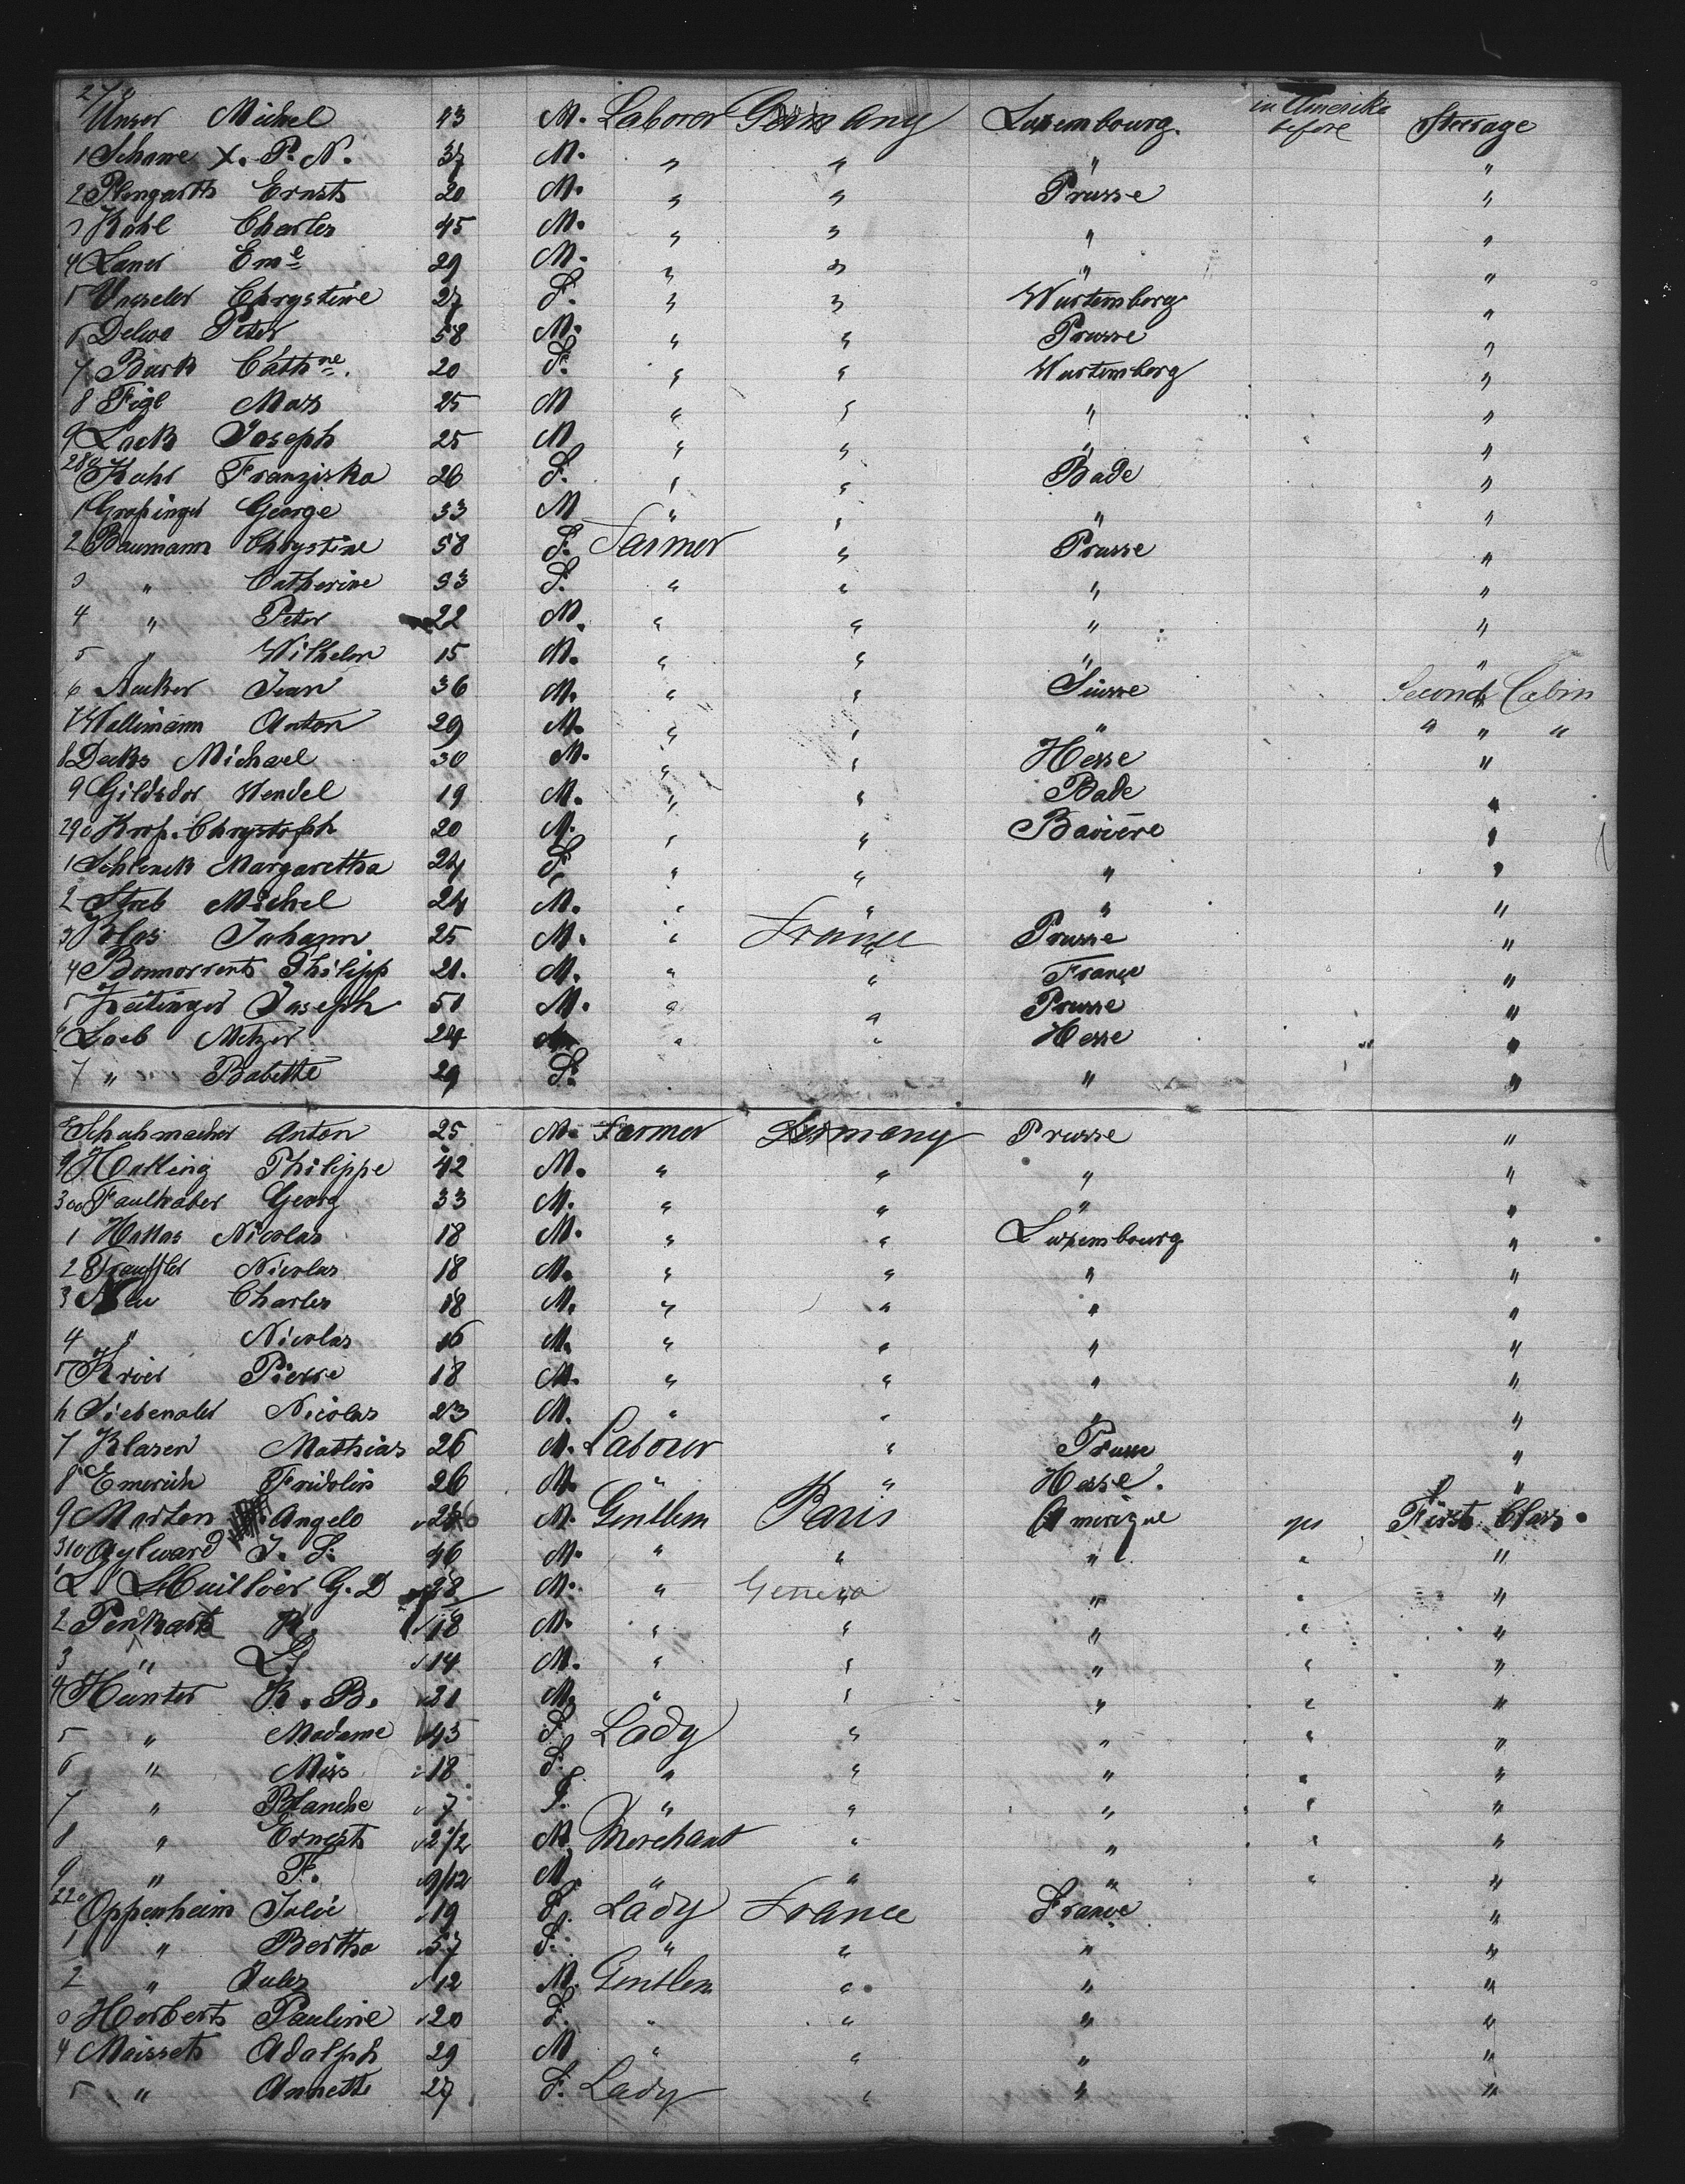 in Amerika
270 Unser Michel 43 M. Laborer Germany Luxembourg. before Steerage
1 Schame X. P. N. 37 M. " " " "
2 Plengarth Ernst 20 M. " " Prusse "
3 Kohl Charles 45 M. " " " "
4 Laner Eme 29 M. " " " "
5 Chrystine 27 F. " " Wurtemberg "
6 Delwo Peter 58 M. " " Prusse "
7 Burk Cathne. 20 F. " " Wurtemberg "
8 Figl Max 25 M " " " "
9 Lack Joseph 25 M " " " "
280 Kuhr Franziska 26 F. " " Bade "
1 George 33 M " " " "
2 Baumann Chrystine 58 F. Farmer " Prusse "
3 " Catherine 33 F. " " " "
4 " Peter 22 M. " " " "
5 " Wilhelm 15 M. " " " "
6 Jean 36 M. " " Suisse Second Cabin
7 Wallimann Anton 29 M. " " " " " "
8 Decks Michael 30 M. " " Hesse "
9 Gildsdor Wendel 19 M. " " Bade "
290 Krop. Chrystoph 20 M. " " Bavière "
1 Schlenck Margaretha 24 F. " " " "
2 Streb Michel 24 M. " " " "
3 Blas Johann 25 M. " France Prusse "
4 Philipp 21. M. " " France "
5 Keitinger Joseph 51 M. " " Prusse "
6 Loeb Metzer 24 M " " Hesse "
7 " Babette 29 F. " "
8 Schuhmacher Anton 25 M. Farmer Germany Prusse "
9 Hatling Philippe 42 M. " " " "
300 Faulhaber Georg 33 M. " " " "
1 Hattas Nicolas 18 M. " " Luxembourg "
2 Trauffler Nicolas 18 M. " " " "
3 Neu Charles 18 M. " " " "
4 " Nicolas 16 M. " " " "
5 Krier Pierre 18 M. " " " "
6 Siebenaler Nicolas 23 M. " " " "
7 Klasen Mathias 26 M. Laborer " Prusse "
8 Emerich Fridolin 26 M. " " Hesse. "
9 Marten Angelo M. Gentlem Paris Amerique yes First Class
310 Aylward J. S. 46 M. " " " " "
1 L' Huillier G. D 28 M. " Geneva " " "
2 Penkarts R. 18 M. " " " " "
3 " L. 14 M. " " " " "
4 Hunter R. B. 21 M. " " " " "
5 " Madame 43 F. Lady " " " "
6 " Miss 18 F. " " " " "
7 " Blanche 7 F. " " " " "
8 " Ernest 2 1/2 M. Merchant " " " "
9 " F. 9/12 M. " " " " "
220 Oppenheim Julie 19 F. Lady France France "
1 " Bertha 57 F. " " " "
2 " Jules 12 M. Gentlem " " "
3 Herberts Pauline 20 F. " " " "
4 Maissets Adalph 29 M " " " "
5 " Annette 27 F. Lady " " "